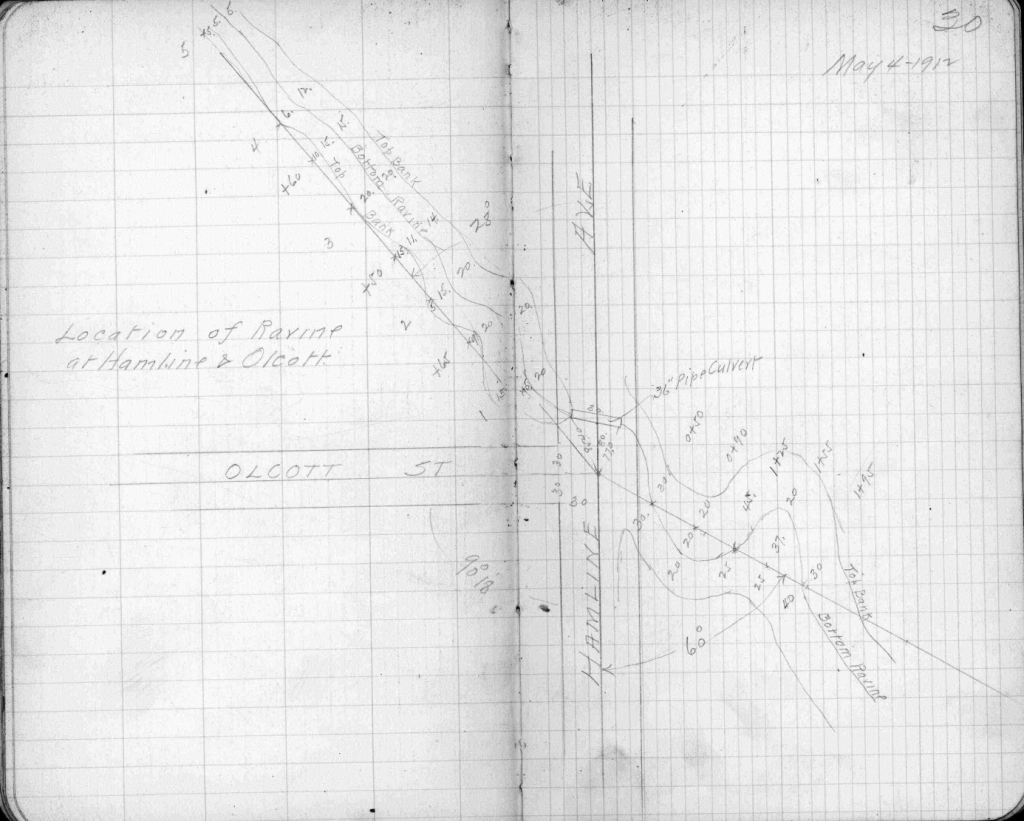 30
May 4-1912
Location of Ravine
at Hamline & Olcott
Top Bank
Bottom Ravine
Top Bank
28°
5
4
+60
3
+50
2
+65
1
12
15
20
14
11
15
20
15
20
20
20
36" Pipe Culvert
OLCOTT ST
HAMLINE AVE
30
30
80
90° 18'
0+50
0+90
1+25
1+55
1+95
30
30
20
20
20
45
25
37
20
25
30
40
60°
Top Bank
Bottom Ravine